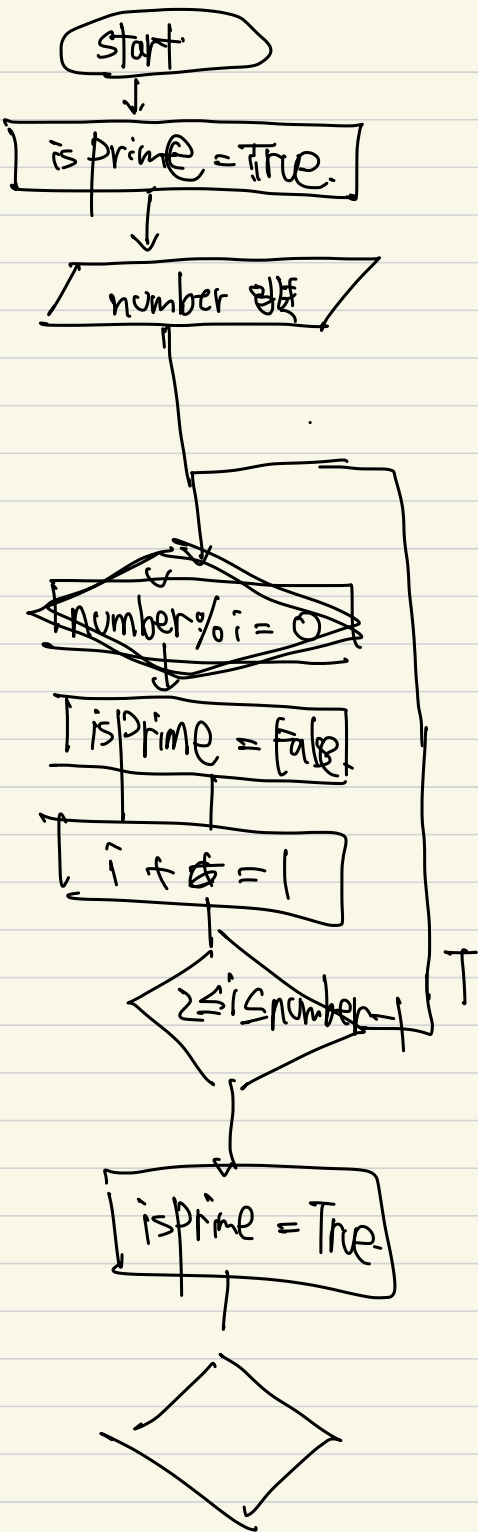 start
isPrime = True.
number
number % i = 0
isPrime = False.
i + = 1
2 ≤ i ≤ number - 1
T
isPrime = True.